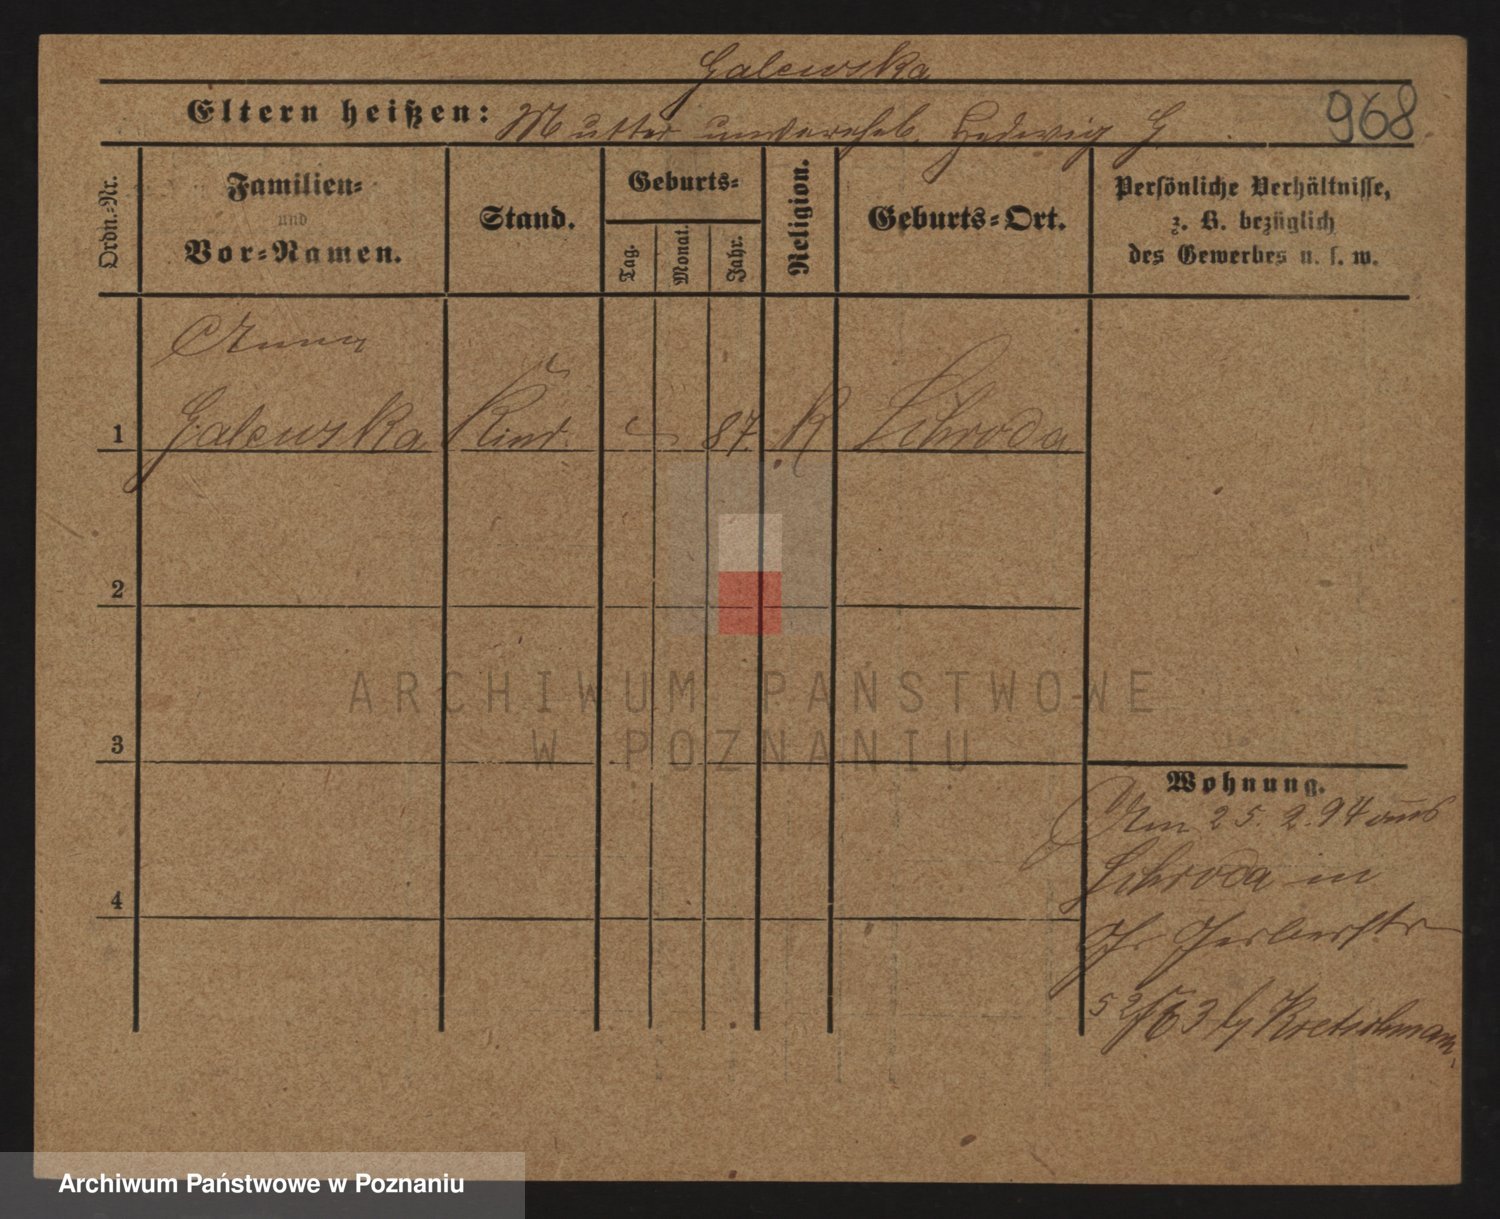 Galewska
Eltern heißen: Mutter unverehel. Hedwig G.
968
Ordn.-Nr.
Familien-
und
Vor-Namen.
Stand.
Geburts-
Tag.
Monat.
Jahr.
Religion.
Geburts-Ort.
Persönliche Verhältnisse,
z. B. bezüglich
des Gewerbes u. s. w.
Anna
1 Galewska Kind 87 K Schroda
2
3
4
ARCHIWUM PAŃSTWOWE
W POZNANIU
Wohnung.
Am 25. 2. 94 aus
Schroda in
Gerberstr
52/53 Kretschmann
Archiwum Państwowe w Poznaniu